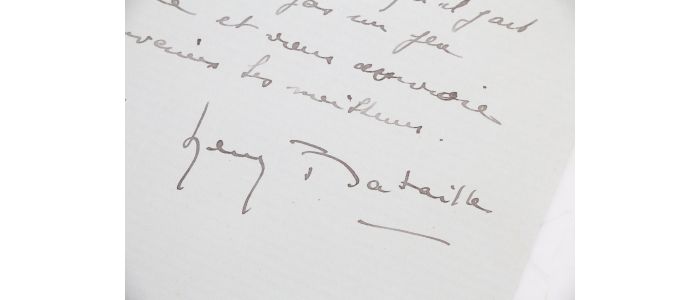 qu'il fait
pas un peu
et vous envoie
souvenirs les meilleurs.
Henry Bataille